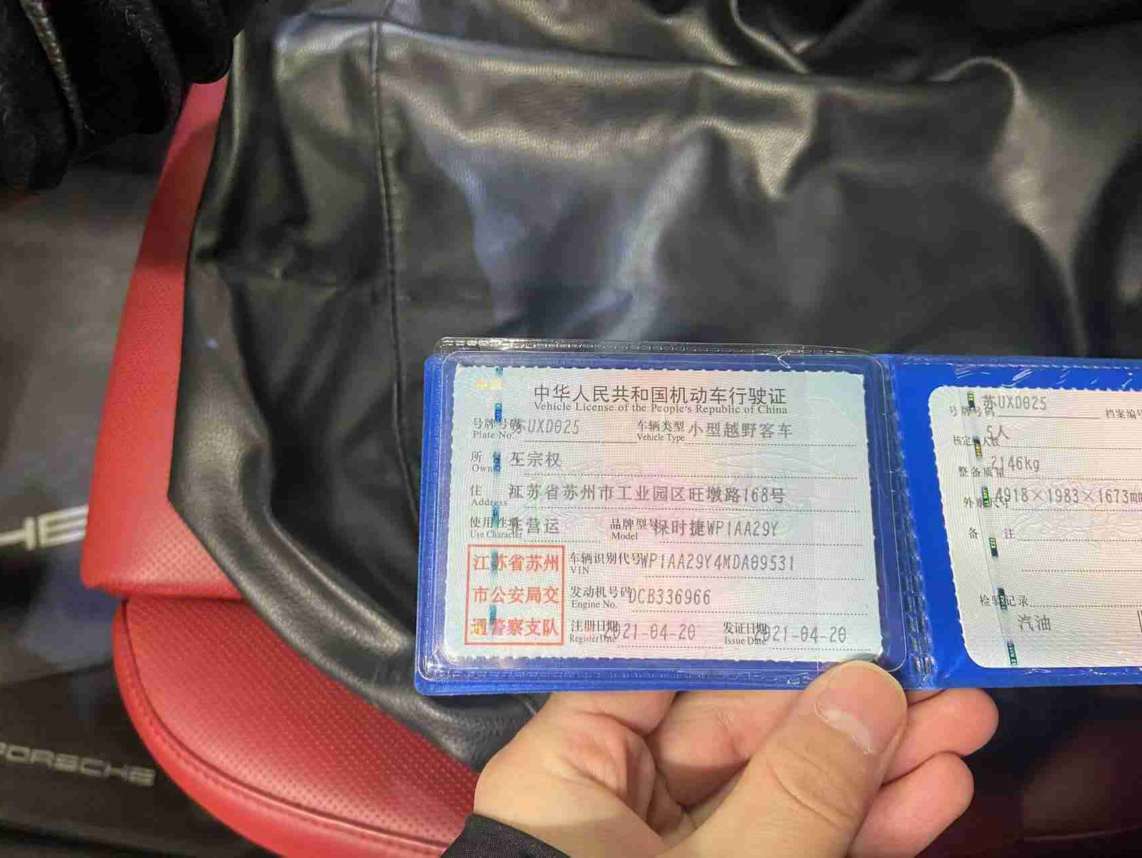 中华人民共和国机动车行驶证
Vehicle License of the People's Republic of China
号牌号码 苏UXD025 车辆类型 小型越野客车
Plate No. Vehicle Type
所 王宗权
Owner
住 江苏省苏州市工业园区旺墩路168号
Address
使用性 非营运 品牌型号 保时捷WP1AA29Y
Use Character Model
江苏省苏州
市公安局交
通警察支队
车辆识别代号 WP1AA29Y4MDA09531
VIN
发动机号码 DCB336966
Engine No.
注册日期 2021-04-20 发证日期 2021-04-20
Register Date Issue Date
号牌号码 苏UXD025 档案编号
核定 人数 5人
整备质量 2146kg
外 尺寸 4918×1983×1673mm
备 注
检验记录
汽油
PORSCHE